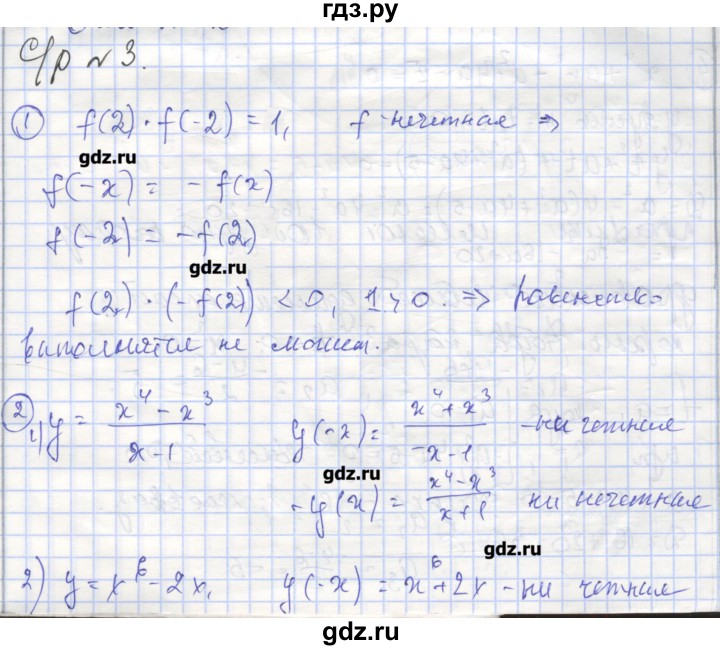 гдз.ру
С/р № 3.
① f(2) · f(-2) = 1, f - нечетная ⇒
gdz.ru
f(-x) = - f(x)
f(-2) = -f(2)
gdz.ru
f(2) · (-f(2)) < 0, 1 > 0. ⇒ равенство
выполнятся не может.
② 1) y = \frac{x^4 - x^3}{x - 1} y(-x) = \frac{x^4 + x^3}{-x - 1} - ни четная
gdz.ru
-y(x) = \frac{x^4 - x^3}{x + 1} ни нечетная
gdz.ru
2) y = x^6 - 2x, y(-x) = x^6 + 2x - ни четная
gdz.ru